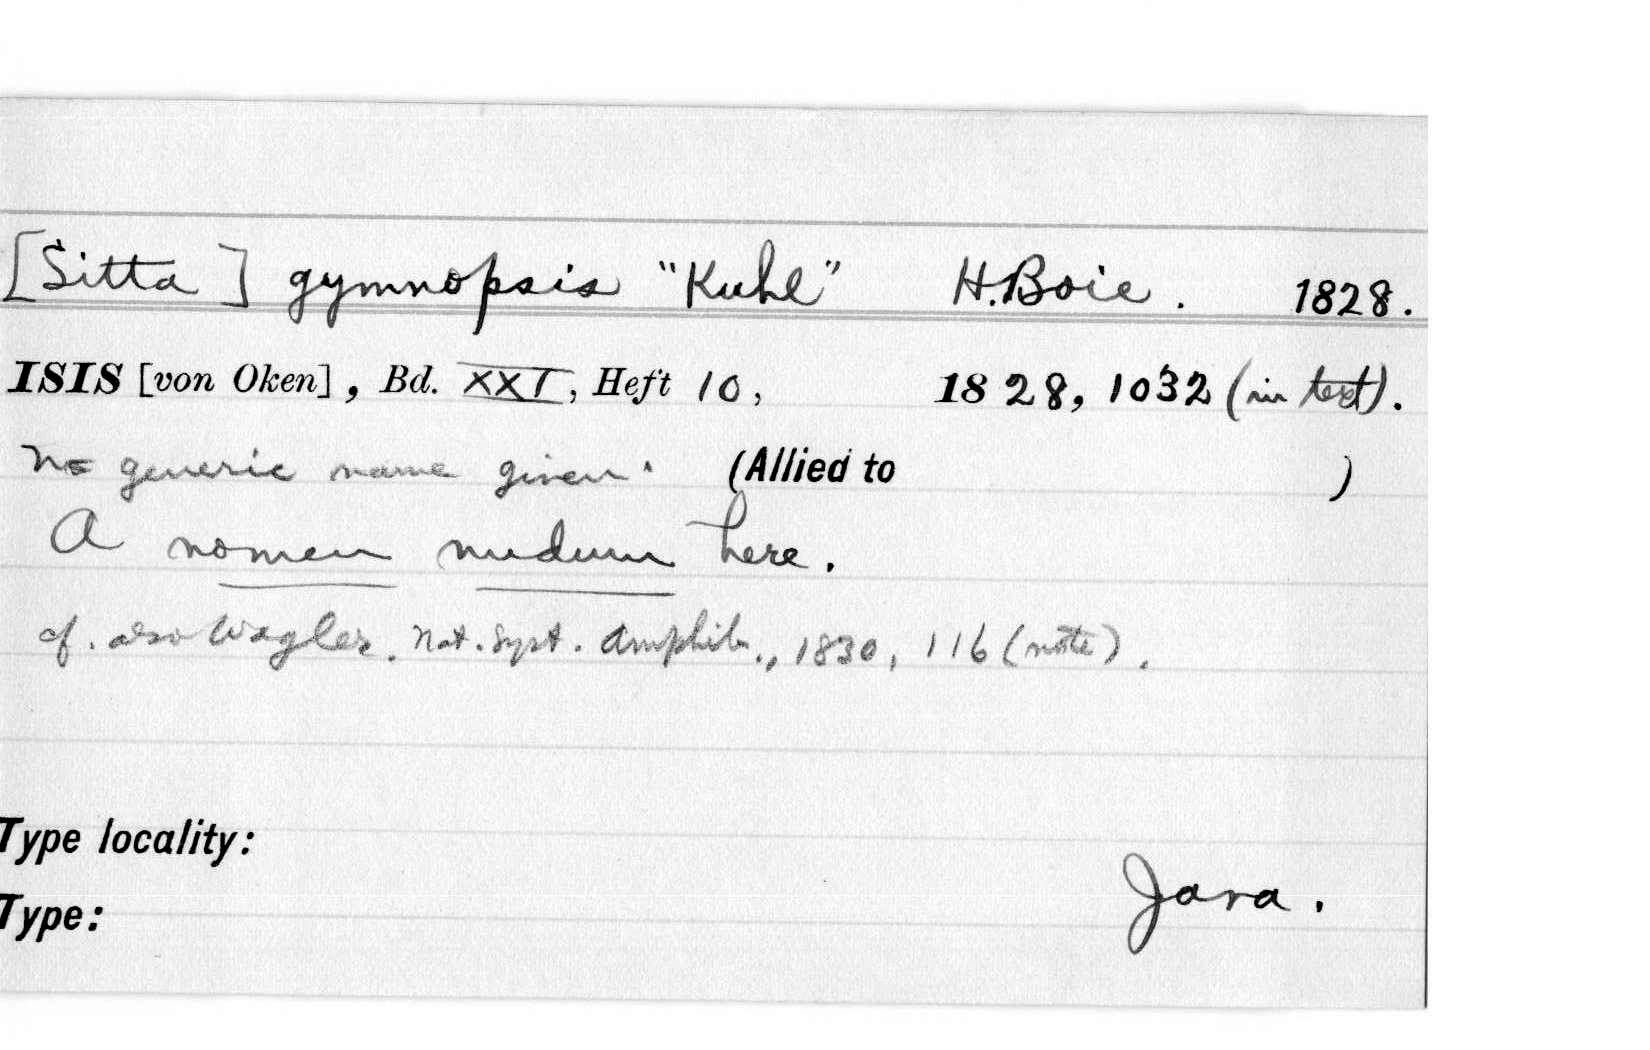 [Sitta] gymnopsis "Kuhl" H. Boie. 1828.
ISIS [von Oken], Bd. XXI, Heft 10, 1828, 1032 (in text).
No generic name given. (Allied to )
A nomen nudum here.
cf. also Wagler. Nat. Syst. Amphib., 1830, 116 (note).
Type locality:
Java.
Type: